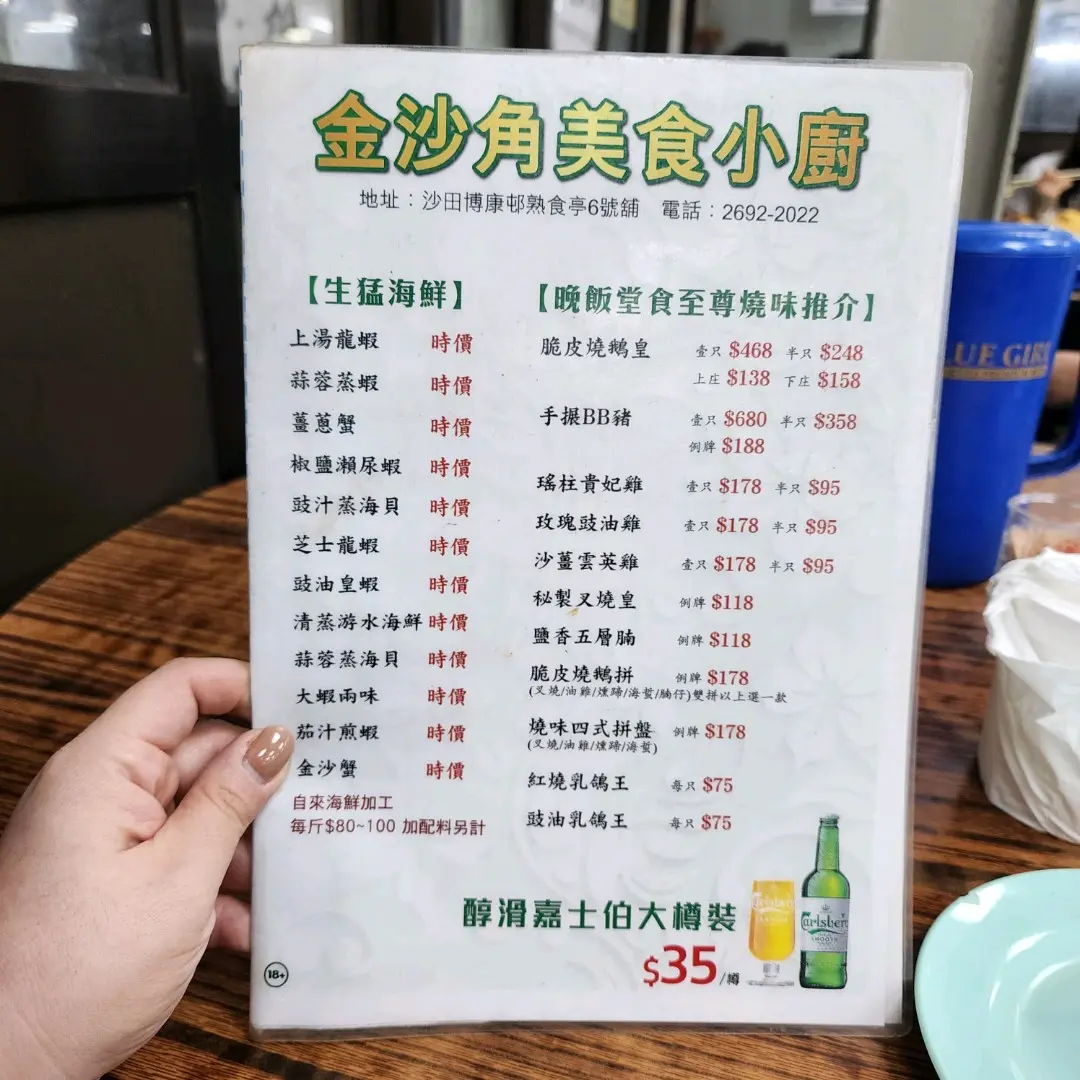 金沙角美食小廚
地址：沙田博康邨熟食亭6號舖 電話：2692-2022
【生猛海鮮】
上湯龍蝦 時價
蒜蓉蒸蝦 時價
薑蔥蟹 時價
椒鹽瀨尿蝦 時價
豉汁蒸海貝 時價
芝士龍蝦 時價
豉油皇蝦 時價
清蒸游水海鮮 時價
蒜蓉蒸海貝 時價
大蝦兩味 時價
茄汁煎蝦 時價
金沙蟹 時價
自來海鮮加工
每斤$80~100 加配料另計
【晚飯堂食至尊燒味推介】
脆皮燒鵝皇 壹只 $468 半只 $248
上庄 $138 下庄 $158
手搌BB豬 壹只 $680 半只 $358
例牌 $188
瑤柱貴妃雞 壹只 $178 半只 $95
玫瑰豉油雞 壹只 $178 半只 $95
沙薑雲英雞 壹只 $178 半只 $95
秘製叉燒皇 例牌 $118
鹽香五層腩 例牌 $118
脆皮燒鵝拼 例牌 $178
(叉燒/油雞/燻蹄/海蜇/腩仔)雙拼以上選一款
燒味四式拼盤 例牌 $178
(叉燒/油雞/燻蹄/海蜇)
紅燒乳鴿王 每只 $75
豉油乳鴿王 每只 $75
醇滑嘉士伯大樽裝
$35/樽
18+
Carlsberg
Carlsberg
SMOOTH
LUE GIRL